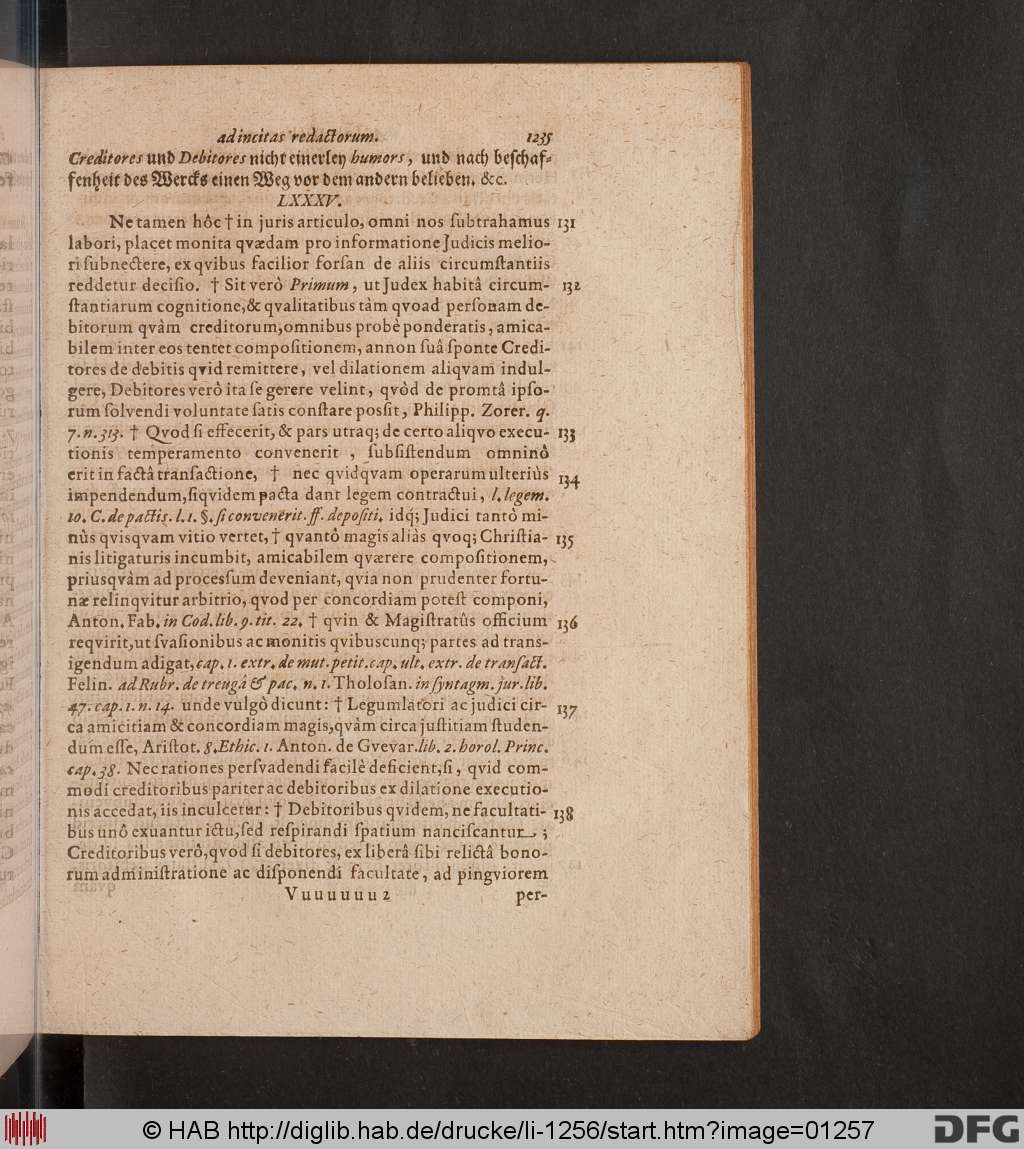 ad incitas redactorum. 1235
Creditores und Debitores nicht einerley humors, und nach beschaf-
fenheit des Wercks einen Weg vor dem andern belieben. &c.
LXXXV.
Ne tamen hôc † in juris articulo, omni nos subtrahamus 131
labori, placet monita qvædam pro informatione Judicis melio-
ri subnectere, ex qvibus facilior forsan de aliis circumstantiis
reddetur decisio. † Sit verò Primum, ut Judex habitâ circum- 132
stantiarum cognitione, & qvalitatibus tàm qvoad personam de-
bitorum qvàm creditorum, omnibus probè ponderatis, amica-
bilem inter eos tentet compositionem, annon suâ sponte Credi-
tores de debitis qvid remittere, vel dilationem aliqvam indul-
gere, Debitores verò ita se gerere velint, qvòd de promtâ ipso-
rum solvendi voluntate satis constare possit, Philipp. Zorer. q.
7. n. 313. † Qvod si effecerit, & pars utraq; de certo aliqvo execu- 133
tionis temperamento convenerit, subsistendum omninò
erit in factâ transactione, † nec qvidqvam operarum ulteriùs 134
impendendum, siqvidem pacta dant legem contractui, l. legem.
10. C. de pactis. l. 1. §. si convenerit. ff. depositi. idq; Judici tantò mi-
nùs qvisqvam vitio vertet, † qvantò magis aliàs qvoq; Christia- 135
nis litigaturis incumbit, amicabilem qværere compositionem,
priusqvàm ad processum deveniant, qvia non prudenter fortu-
næ relinqvitur arbitrio, qvod per concordiam potest componi,
Anton. Fab. in Cod. lib. 9. tit. 22. † qvin & Magistratûs officium 136
reqvirit, ut svasionibus ac monitis qvibuscunq; partes ad trans-
igendum adigat, cap. 1. extr. de mut. petit. cap. ult. extr. de transact.
Felin. ad Rubr. de treugâ & pac. n. 1. Tholosan. in syntagm. jur. lib.
47. cap. 1. n. 14. unde vulgò dicunt: † Legumlatori ac judici cir- 137
ca amicitiam & concordiam magis, qvàm circa justitiam studen-
dum esse, Aristot. 8. Ethic. 1. Anton. de Gvevar. lib. 2. horol. Princ.
cap. 38. Nec rationes persvadendi facilè deficient, si, qvid com-
modi creditoribus pariter ac debitoribus ex dilatione executio-
nis accedat, iis inculcetur: † Debitoribus qvidem, ne facultati- 138
bus unô exuantur ictu, sed respirandi spatium nanciscantur;
Creditoribus verò, qvod si debitores, ex liberâ sibi relictâ bono-
rum administratione ac disponendi facultate, ad pingviorem
Vuuuuuu 2 per-
© HAB http://diglib.hab.de/drucke/li-1256/start.htm?image=01257
DFG